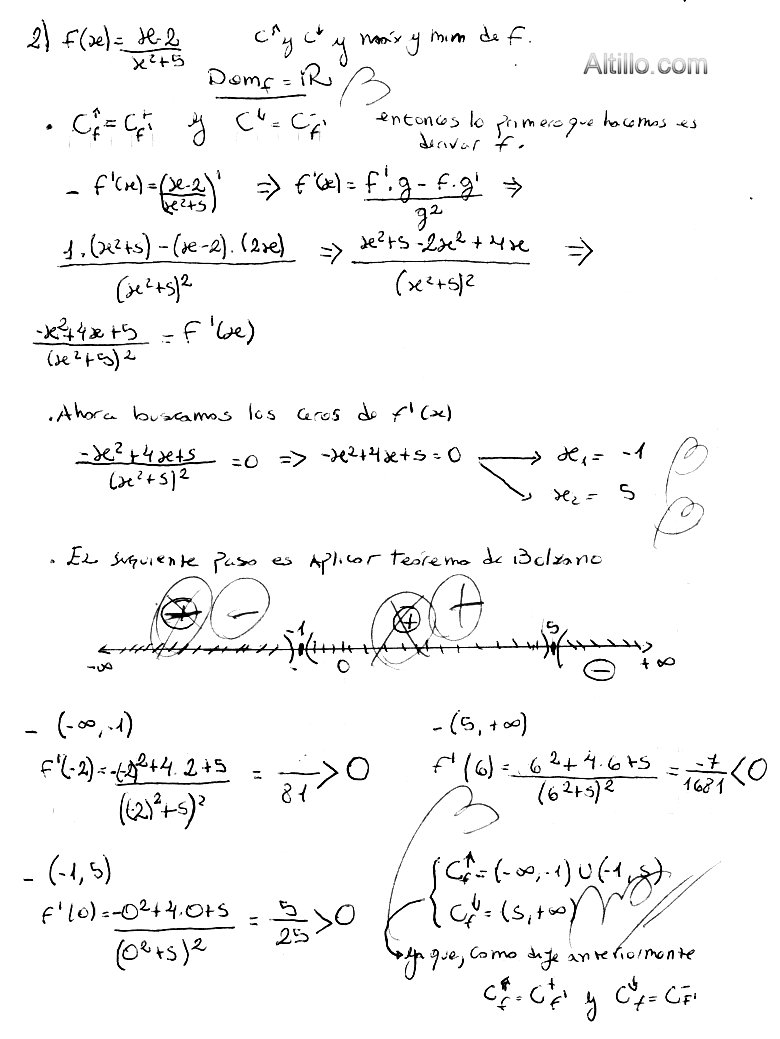 2) f(x) = x-2 / x²+5   C↑ y C↓ y máx y mím de f.
Altillo.com
Domf = ℝ B
• C↑f = C+f' y C↓ = C-f' entonces lo primero que hacemos es
derivar f.
- f'(x) = (x-2 / x²+5)' ⇒ f'(x) = f'.g - f.g' / g² ⇒
1.(x²+5) - (x-2).(2x) / (x²+5)² ⇒ x²+5-2x²+4x / (x²+5)² ⇒
-x²+4x+5 / (x²+5)² = f'(x)
. Ahora buscamos los ceros de f'(x)
-x²+4x+5 / (x²+5)² = 0 ⇒ -x²+4x+5 = 0 → x₁ = -1 B
→ x₂ = 5 B
. El siguiente paso es Aplicar teorema de Bolzano
+ - + +
-∞ -1 0 5 - +∞
- (-∞,-1)
f'(-2) = -(-2)²+4.2+5 / ((-2)²+5)² = / 81 > 0
- (5, +∞)
f'(6) = 6²+4.6+5 / (6²+5)² = -7 / 1681 < 0
- (-1,5)
f'(0) = -0²+4.0+5 / (0²+5)² = 5 / 25 > 0
B
C↑f = (-∞,-1) U (-1,5)
C↓f = (5,+∞)
ya que, como dije anteriormente
C↑f = C+f' y C↓f = C-f'